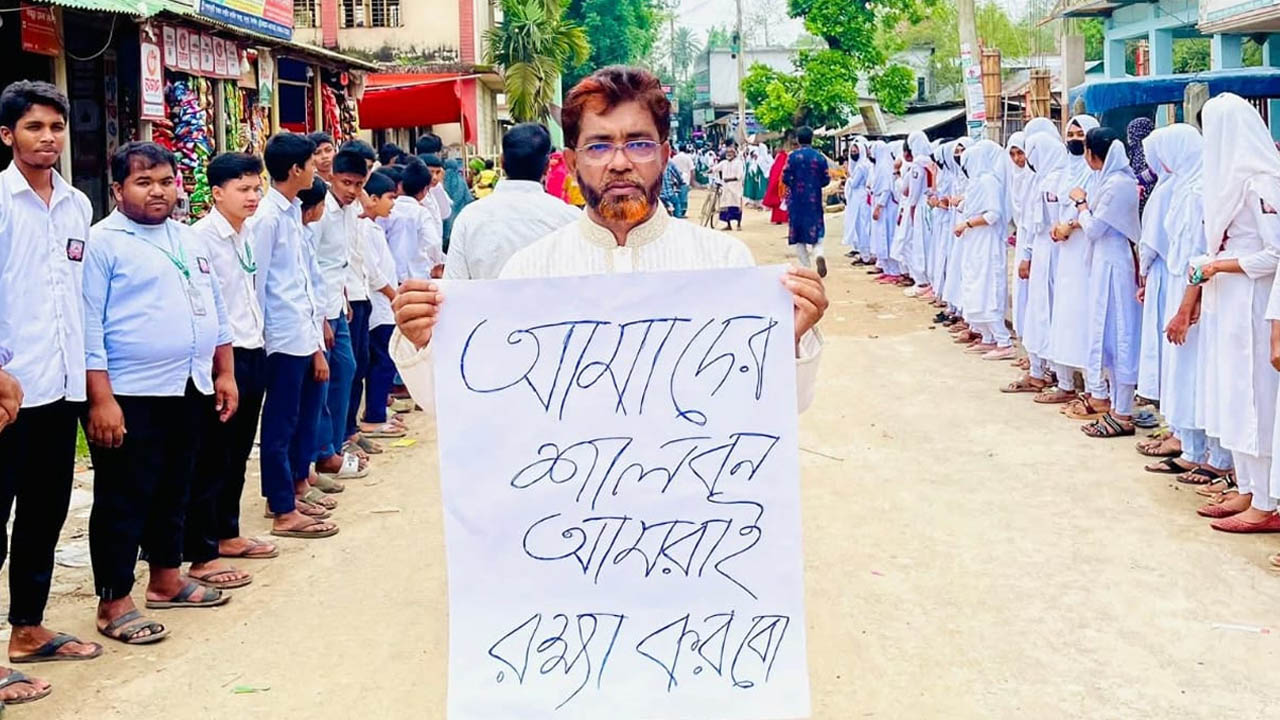 আমাদের
শালবন
আমরাই
রক্ষা করবো